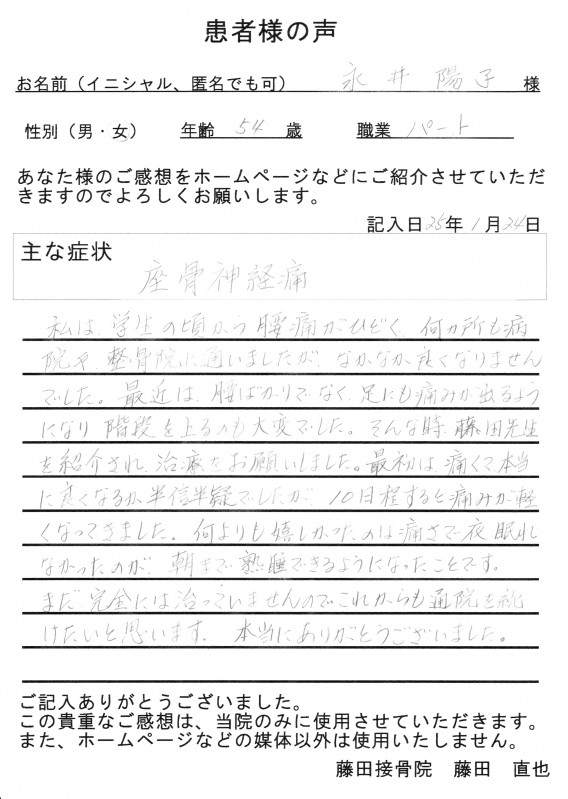 患者様の声
お名前（イニシャル、匿名でも可） 永井 陽子 様
性別（男・女） 年齢 54 歳 職業 パート
あなた様のご感想をホームページなどにご紹介させていただ
きますのでよろしくお願いします。
記入日25年1月24日
主な症状
座骨神経痛
私は、学生の頃から腰痛がひどく、何ヵ所も病
院や整骨院に通いましたが、なかなか良くなりません
でした。最近は、腰ばかりでなく、足にも痛みが出るよう
になり階段を上るのも大変でした。そんな時、藤田先生
を紹介され、治療をお願いしました。最初は、痛くて本当
に良くなるか半信半疑でしたが、10日程すると痛みが軽
くなってきました。何よりも嬉しかったのは痛さで夜眠れ
なかったのが、朝まで熟睡できるようになったことです。
まだ完全には治っていませんのでこれからも通院を続
けたいと思います。本当にありがとうございました。
ご記入ありがとうございました。
この貴重なご感想は、当院のみに使用させていただきます。
また、ホームページなどの媒体以外は使用いたしません。
藤田接骨院 藤田 直也